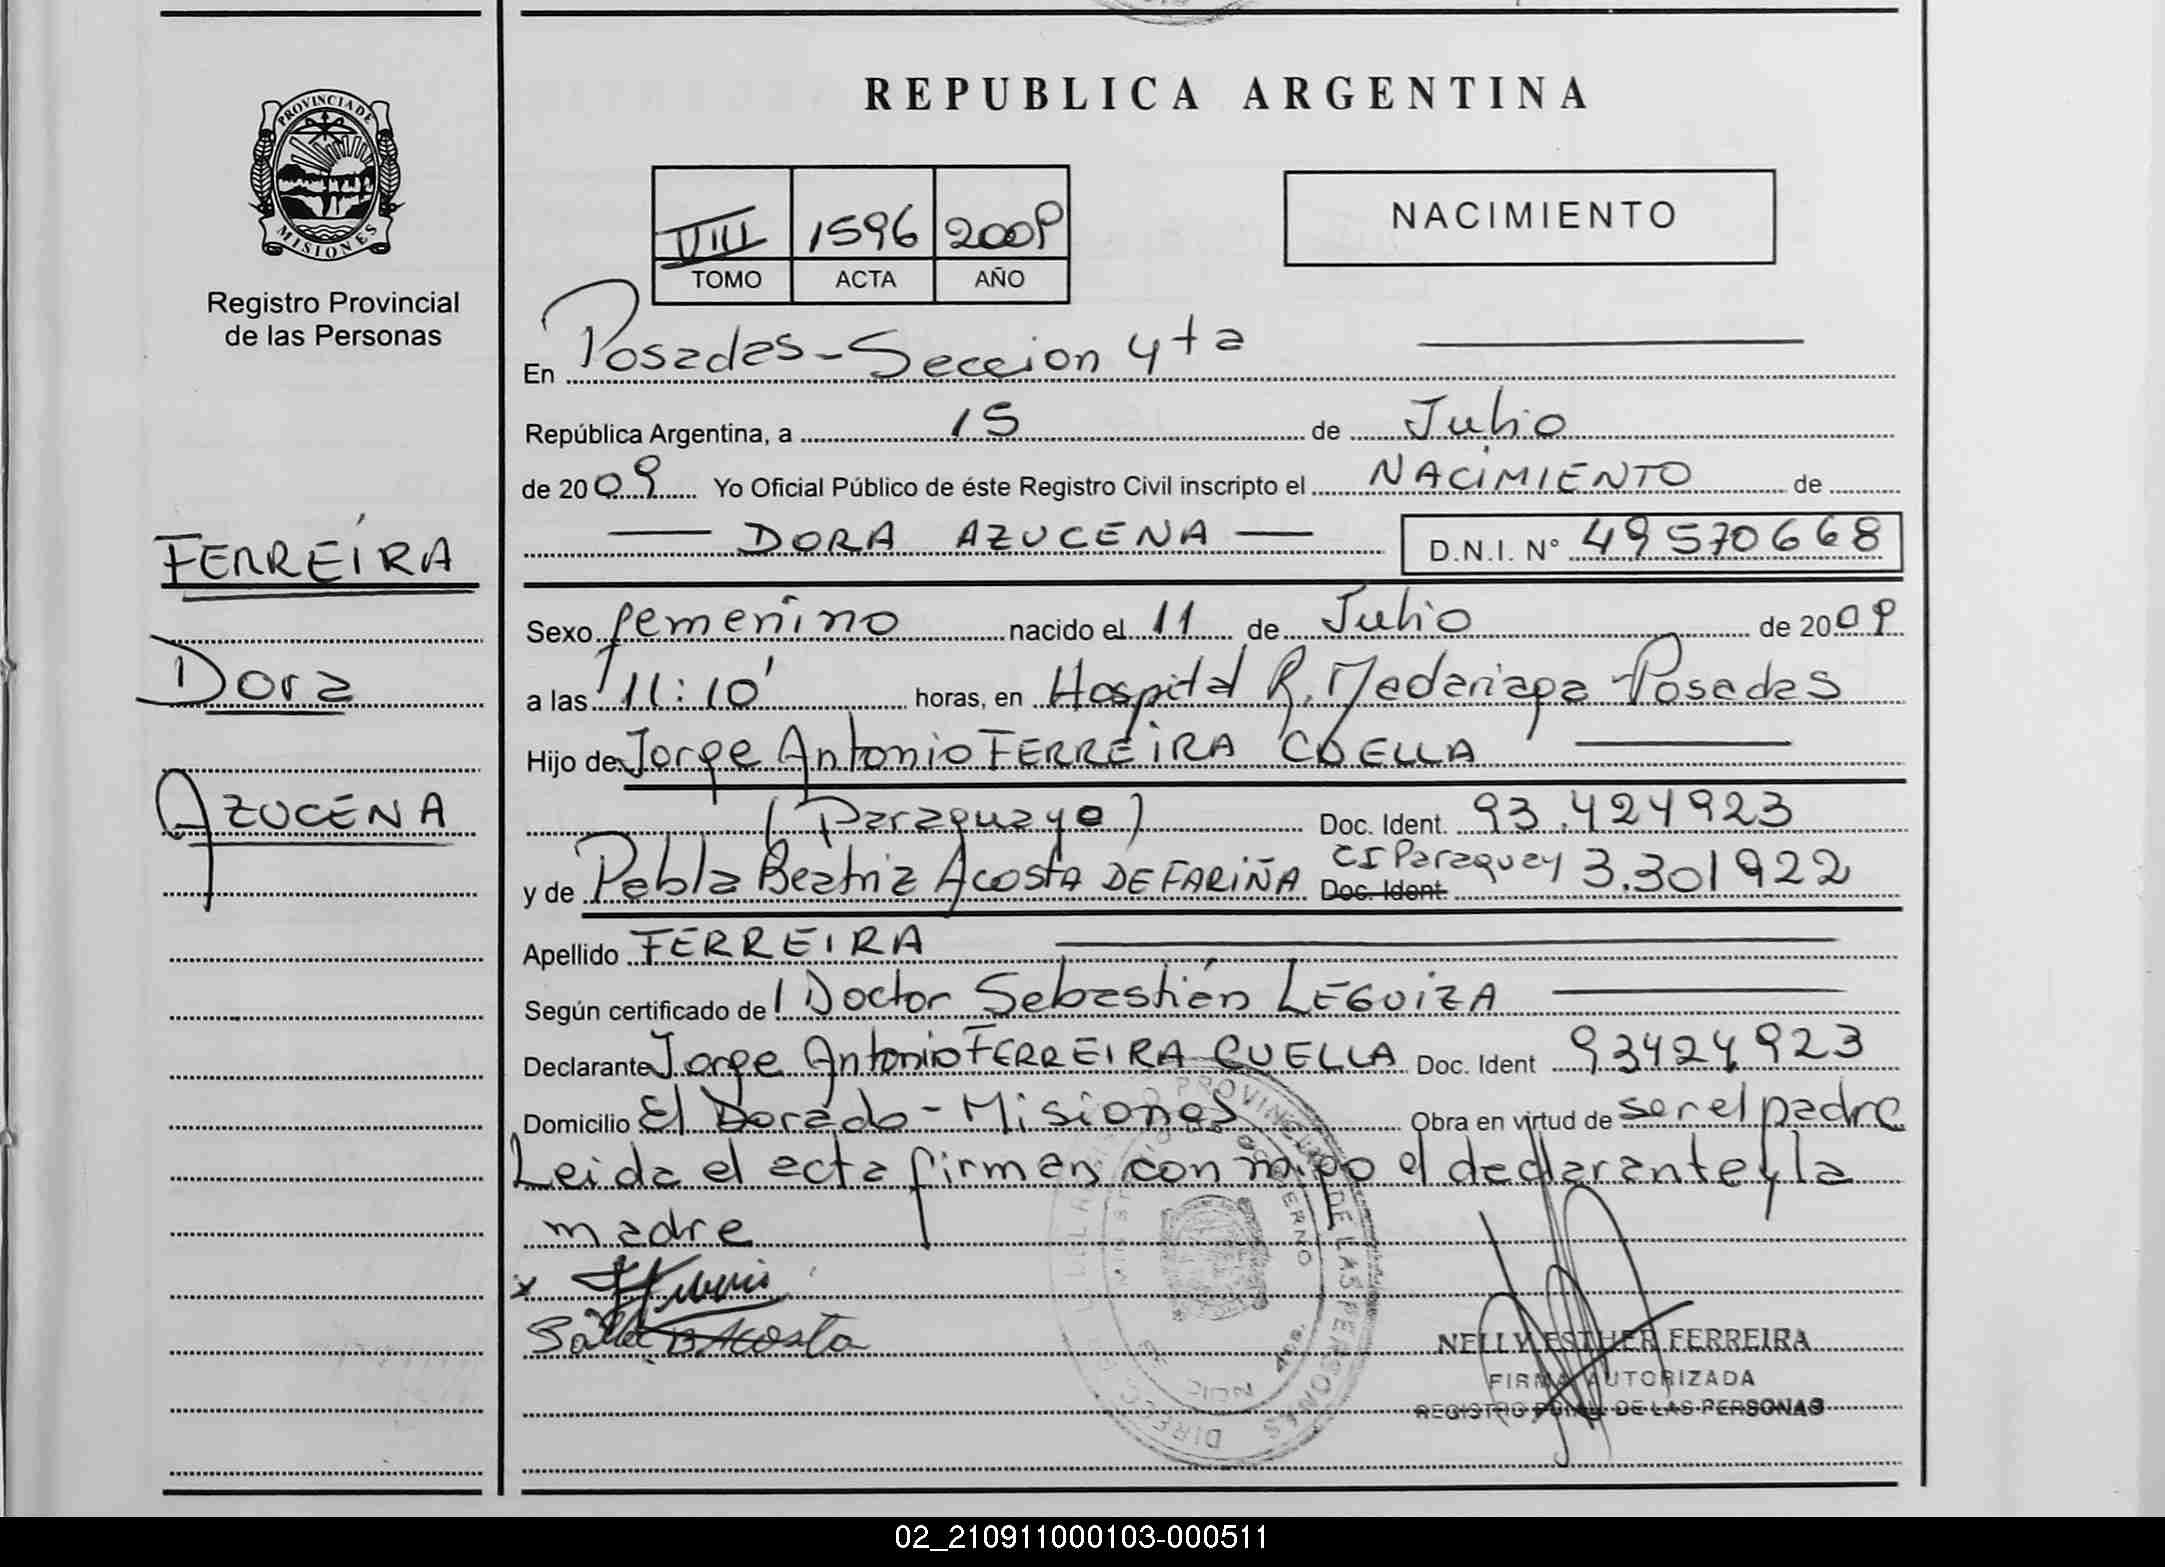 REPUBLICA ARGENTINA
PROVINCIA DE
MISIONES
Registro Provincial
de las Personas
VIII 1596 2009
TOMO ACTA AÑO
NACIMIENTO
En Posadas - Seccion 4ta
República Argentina, a 15 de Julio
de 2009 Yo Oficial Público de éste Registro Civil inscripto el NACIMIENTO de
DORA AZUCENA D.N.I. N° 49570668
FERREIRA
Dora
AZUCENA
Sexo femenino nacido el 11 de Julio de 2009
a las 11:10' horas, en Hospital R. Madariaga - Posadas
Hijo de Jorge Antonio FERREIRA CUELLA
(Paraguayo) Doc. Ident. 93.424923
y de Pabla Beatriz Acosta DE FARIÑA Doc. Ident. CI Paraguay 3.301922
Apellido FERREIRA
Según certificado de l Doctor Sebastián LEGUIZA
Declarante Jorge Antonio FERREIRA CUELLA Doc. Ident 93424923
Domicilio El Dorado - Misiones Obra en virtud de ser el padre
Leida el acta firman con migo el declarante y la
madre
x
B Acosta
NELLY ESTHER FERREIRA
FIRMA AUTORIZADA
REGISTRO DE LAS PERSONAS
02_210911000103-000511